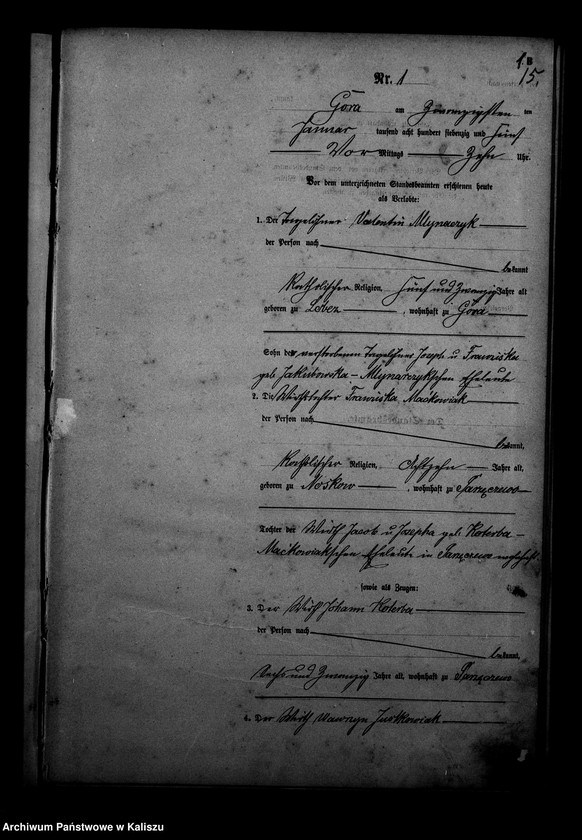 1. B
15.
Nr. 1
Góra am Zwanzigsten ten
Januar tausend acht hundert siebenzig und Fünf
Vor Mittags Zehn Uhr.
Vor dem unterzeichneten Standesbeamten erschienen heute
als Verlobte:
1. Der Tagelöhner Valentin Mlynarczyk
der Person nach
bekannt
Katholischer Religion, Fünf und Zwanzig Jahre alt
geboren zu, wohnhaft zu Góra
Sohn der verstorbenen Tagelöhner Joseph u Franziska
geb. Jakubowska - Mlynarczykschen Eheleute
2. Die Wirthstochter Franziska Maćkowiak
der Person nach
bekannt,
Katholischer Religion, Achtzehn Jahre alt,
geboren zu Noskow, wohnhaft zu Panęczewo
Tochter der Wirth Jacob u Josepha geb. Koterba -
Maćkowiakschen Eheleute in wohnhaft
sowie als Zeugen:
3. Der Wirth Johann Koterba
der Person nach
bekannt,
Sechs und Zwanzig Jahre alt, wohnhaft zu
4. Der Wirth Wawrzyn Juskowiak
Archiwum Państwowe w Kaliszu